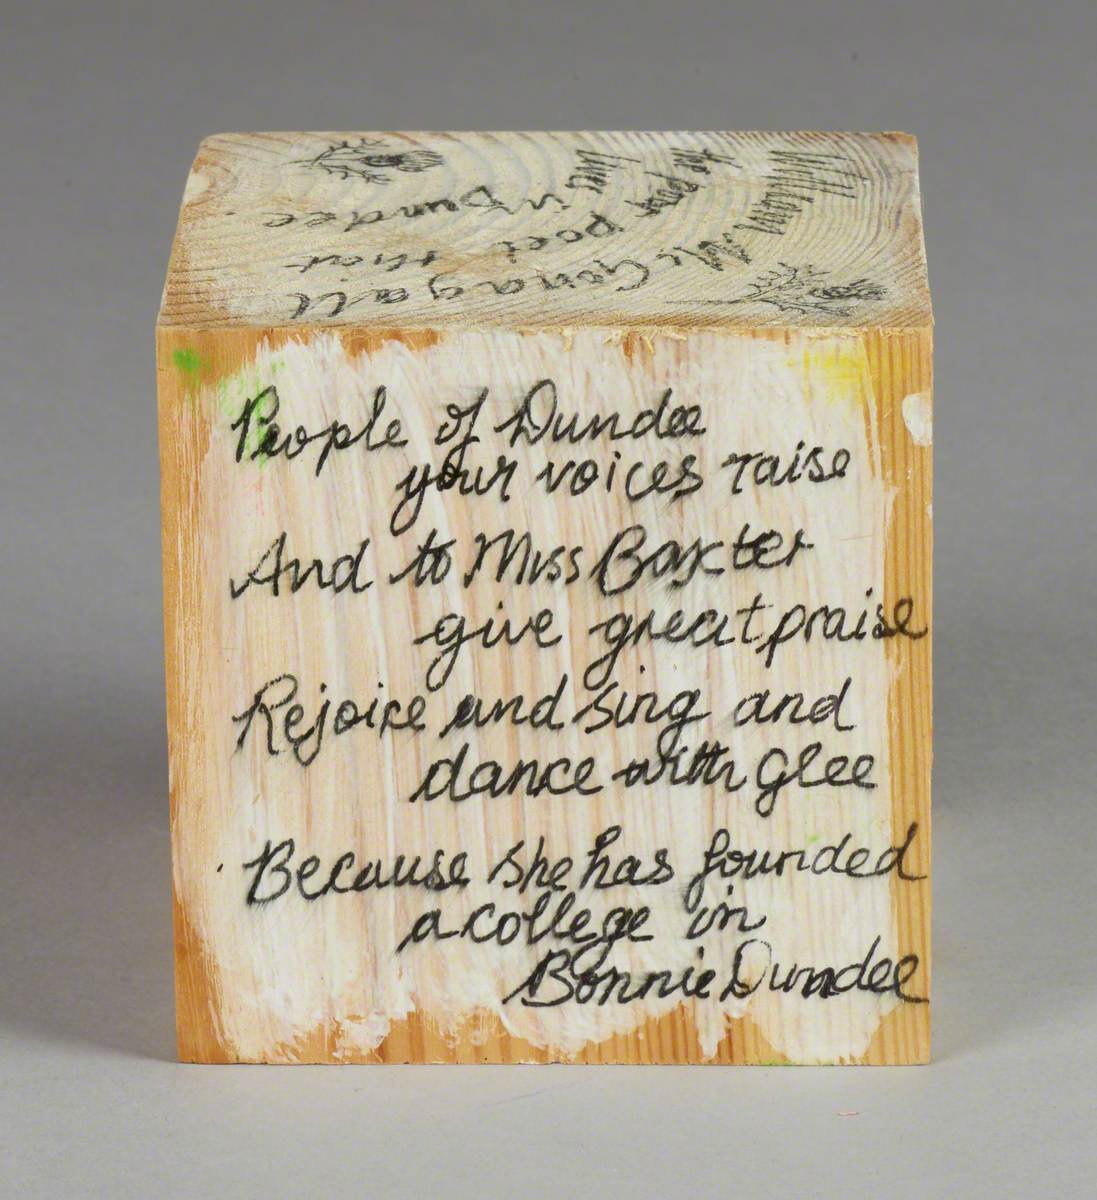 William McGonagall
the poet that
live in Dundee.
People of Dundee
your voices raise
And to Miss Baxter
give great praise
Rejoice and sing and
dance with glee
Because she has founded
a college in
Bonnie Dundee